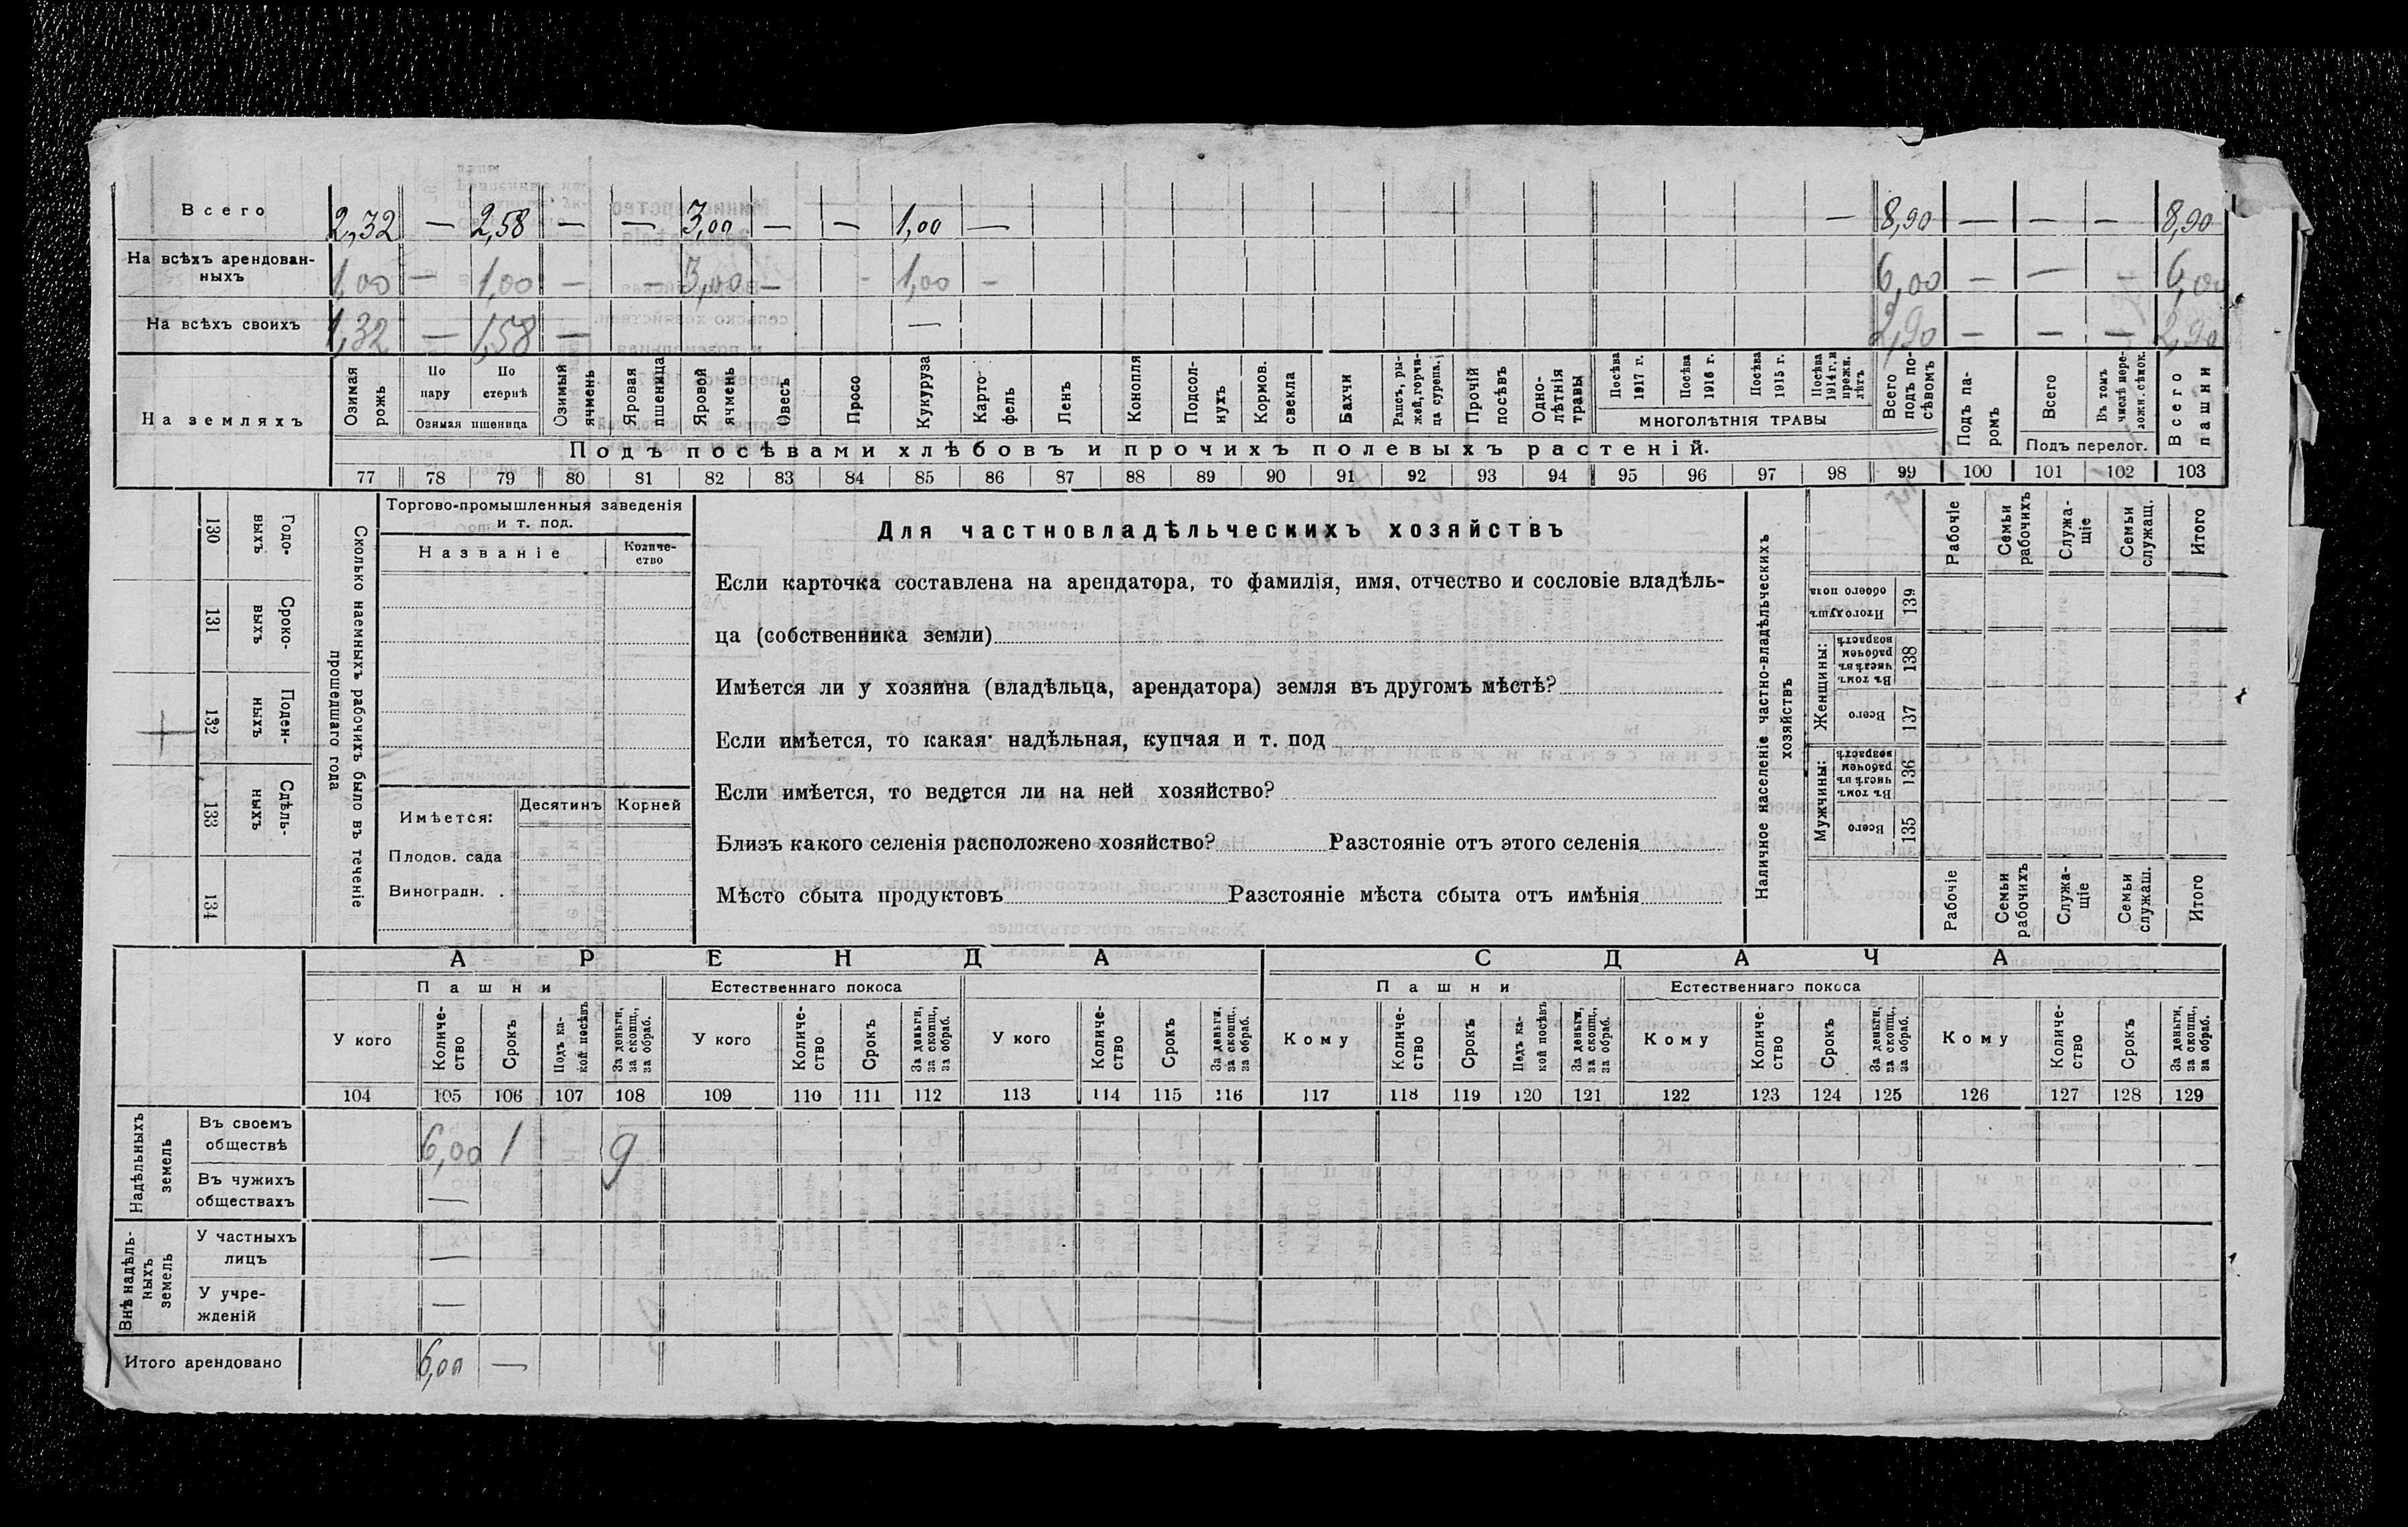 Всего 2,32 — 2,58 — — 3,00 — — 1,00 — — 8,90 — — — 8,90
На всѣхъ арендован-
ныхъ 1,00 — 1,00 — — 3,00 — - 1,00 — 6,00 — — — 6,00
На всѣхъ своихъ 1,32 — 1,58 — — 2,90 — — — 2,90
На земляхъ
Озимая рожь
По пару
По стернѣ
Озимая пшеница
Озимый ячмень
Яровая пшеница
Яровой ячмень
Овесъ
Просо
Кукуруза
Карто-фель
Ленъ
Конопля
Подсол-нухъ
Кормов. свекла
Бахчи
Рапсъ, ры-жей, горчи-ца сурепа.
Прочій посѣвъ
Одно-лѣтнія травы
Посѣва 1917 г.
Посѣва 1916 г.
Посѣва 1915 г.
Посѣва 1914 г. и прежн. лѣтъ
МНОГОЛѢТНІЯ ТРАВЫ
Всего подъ по-сѣвомъ
Подъ па-ромъ
Всего
Въ томъ числѣ пере-ложн. сѣнок.
Подъ перелог.
Всего пашни
Подъ посѣвами хлѣбовъ и прочихъ полевыхъ растеній.
77 78 79 80 81 82 83 84 85 86 87 88 89 90 91 92 93 94 95 96 97 98 99 100 101 102 103
130 Годо-выхъ
131 Сроко-выхъ
132 Поден-ныхъ
133 Сдѣль-ныхъ
134
Сколько наемныхъ рабочихъ было въ теченіе
прошедшаго года
Торгово-промышленныя заведенія
и т. под.
Названіе
Количе-
ство
Имѣется: Десятинъ Корней
Плодов. сада
Виноградн. .
Для частновладѣльческихъ хозяйствъ
Если карточка составлена на арендатора, то фамилія, имя, отчество и сословіе владѣль-
ца (собственника земли)
Имѣется ли у хозяина (владѣльца, арендатора) земля въ другомъ мѣстѣ?
Если имѣется, то какая: надѣльная, купчая и т. под
Если имѣется, то ведется ли на ней хозяйство?
Близъ какого селенія расположено хозяйство? Разстояніе отъ этого селенія
Мѣсто сбыта продуктовъ Разстояніе мѣста сбыта отъ имѣнія
Наличное населеніе частно-владѣльческихъ
хозяйствъ
Рабочіе
Семьи рабочихъ
Служа-щіе
Семьи служащ.
Итого
Итого душъ обоего пола 139
Женщины:
Въ томъ числѣ въ рабочемъ возрастѣ 138
Всего 137
Мужчины:
Въ томъ числѣ въ рабочемъ возрастѣ 136
Всего 135
Рабочіе
Семьи рабочихъ
Служа-щіе
Семьи служащ.
Итого
АРЕНДА СДАЧА
Пашни Естественнаго покоса Пашни Естественнаго покоса
У кого
Количе-ство
Срокъ
Подъ ка-кой посѣвъ
За деньги, за скопщ., за обраб.
У кого
Количе-ство
Срокъ
За деньги, за скопщ., за обраб.
У кого
Количе-ство
Срокъ
За деньги, за скопщ., за обраб.
Кому
Количе-ство
Срокъ
Подъ ка-кой посѣвъ
За деньги, за скопщ., за обраб.
Кому
Количе-ство
Срокъ
За деньги, за скопщ., за обраб.
Кому
Количе-ство
Срокъ
За деньги, за скопщ., за обраб.
104 105 106 107 108 109 110 111 112 113 114 115 116 117 118 119 120 121 122 123 124 125 126 127 128 129
Надѣльныхъ земель
Въ своемъ
обществѣ 6,00 1 9
Въ чужихъ
обществахъ —
Внѣ надѣль-ныхъ земель
У частныхъ
лицъ —
У учре-
жденій —
Итого арендовано 6,00 —